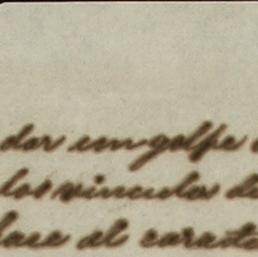 dar un golpe
los vinculos de
hace al caracte